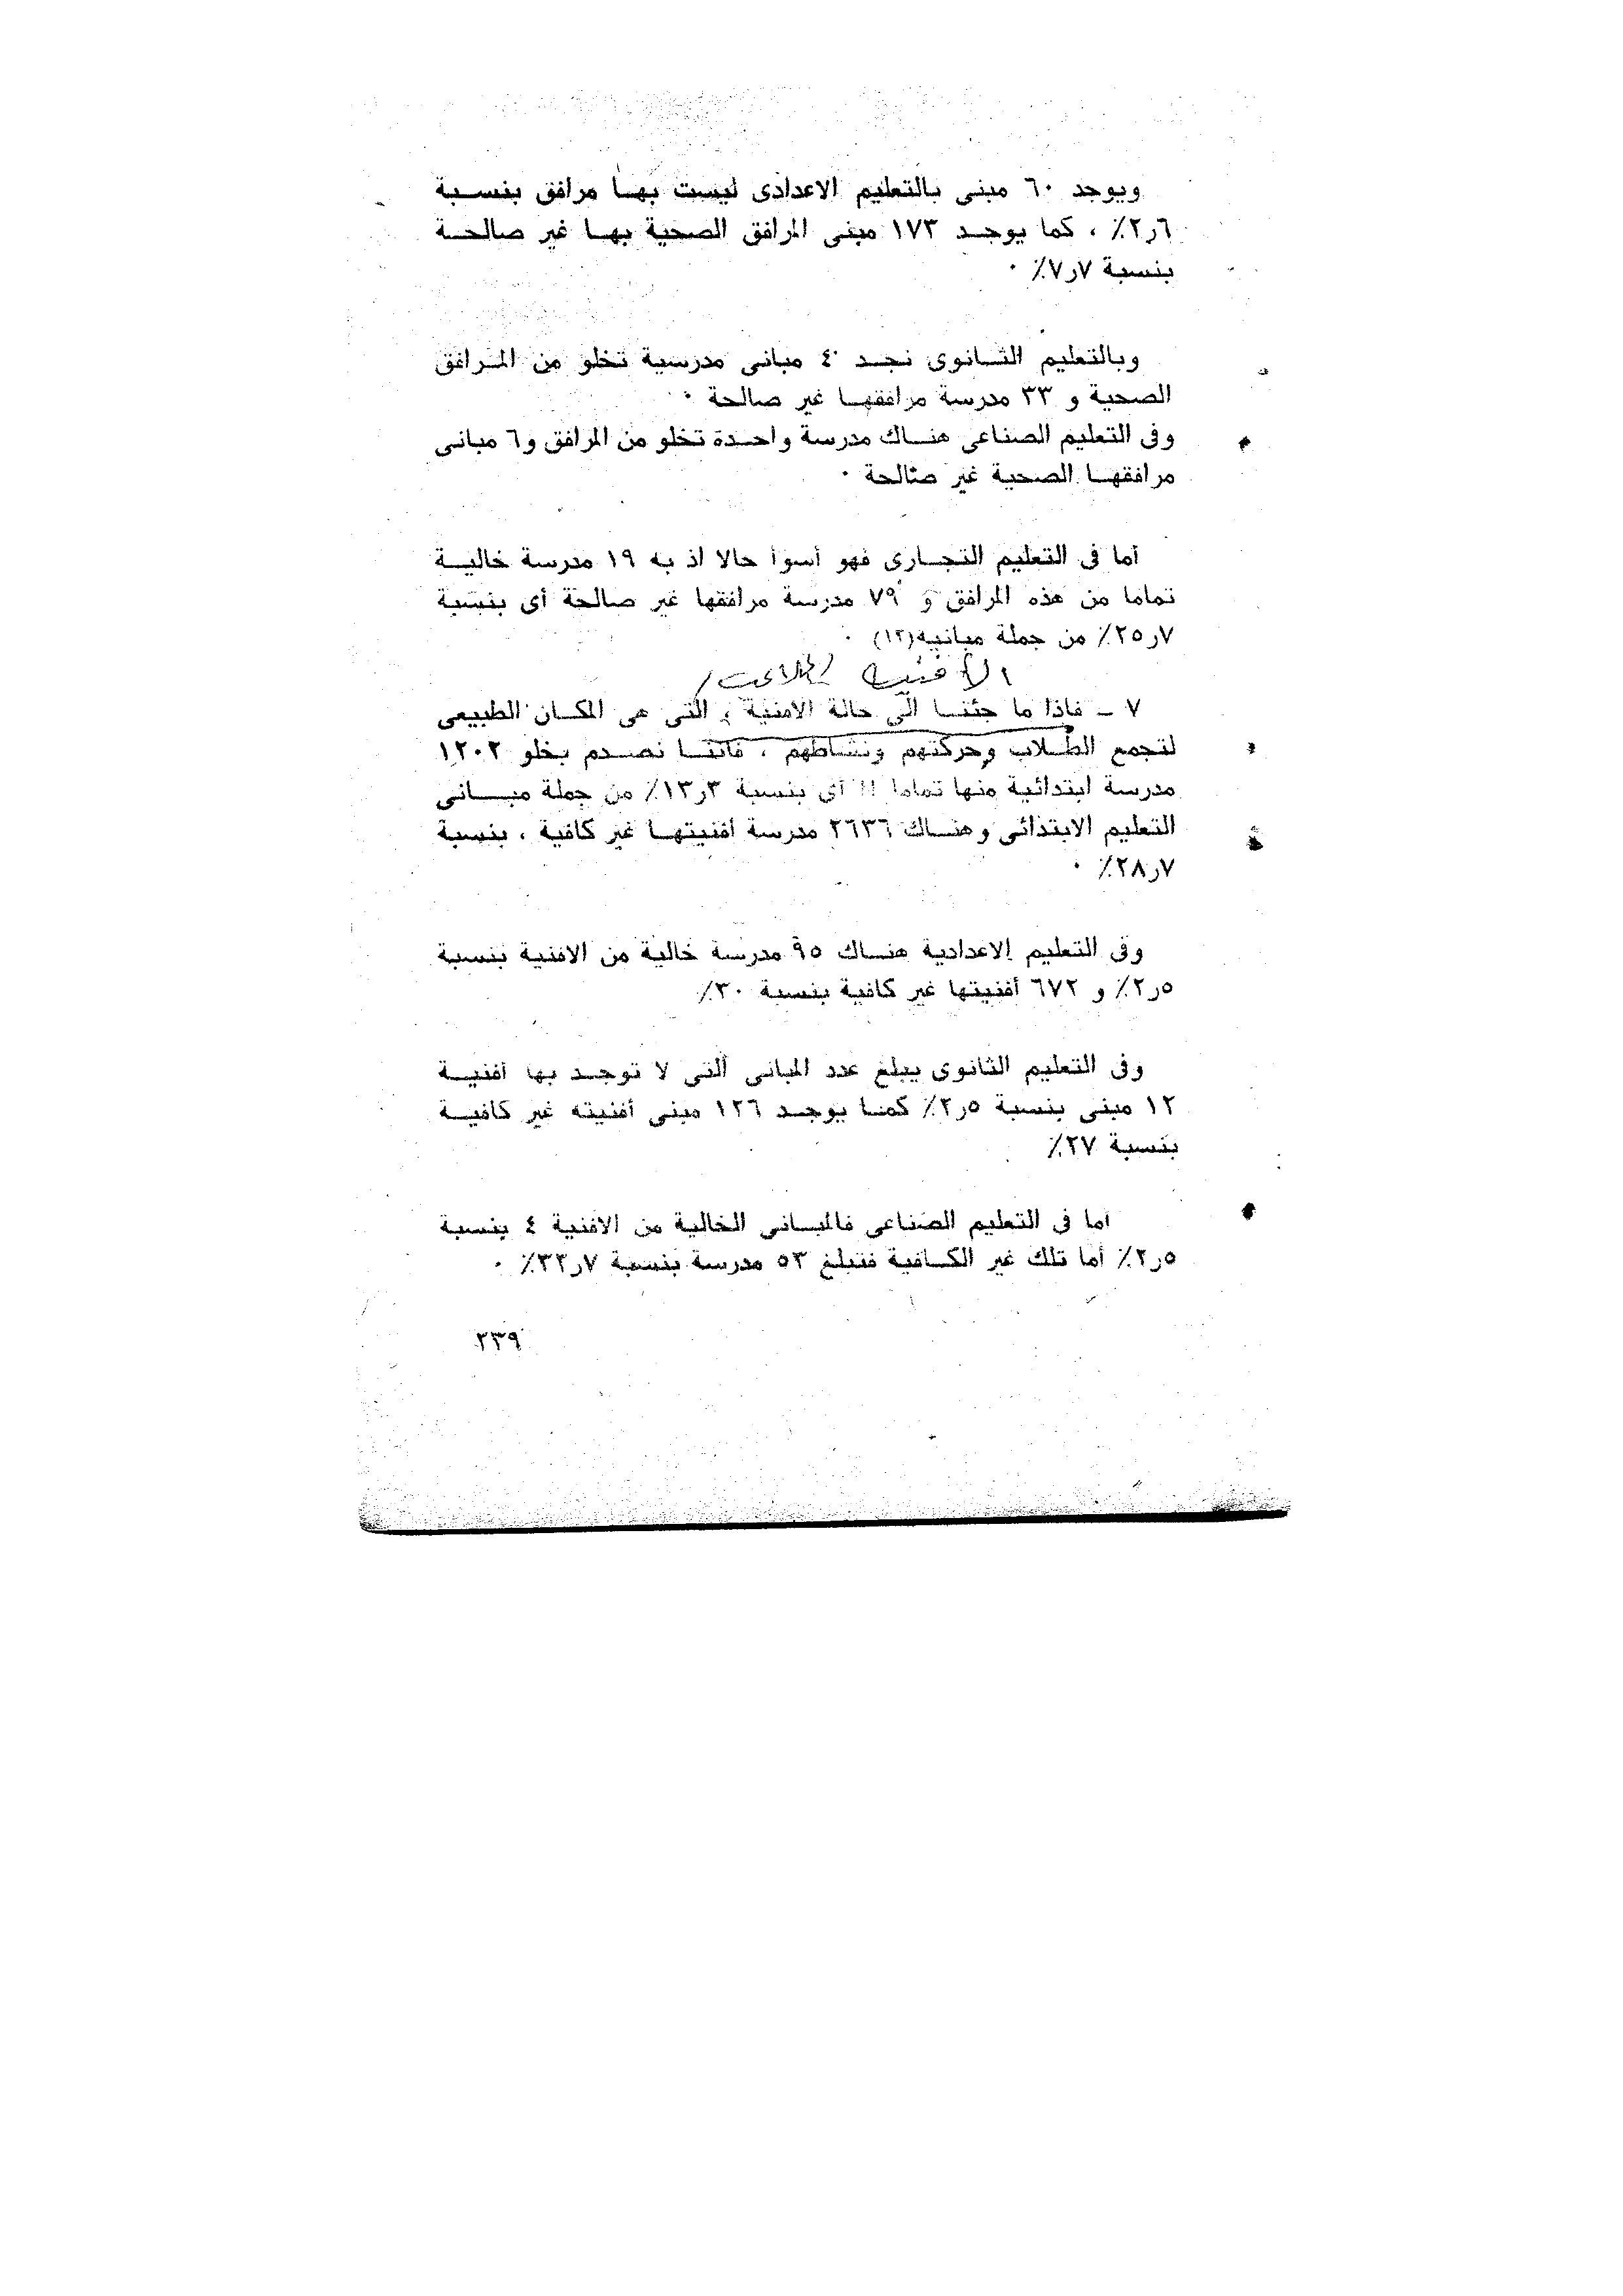 ويوجد ٦٠ مبنى بالتعليم الاعدادى ليست بهـا مرافق بنسـبة
٦ر٢٪ ، كما يوجـد ١٧٣ مبنى المرافق الصحية بهـا غير صالحـة
بنسبة ٧ر٧٪ ٠
وبالتعليم الثـانوى نجـد ٤٠ مبانى مدرسية تخلو من المـرافق
الصحية و ٣٣ مدرسة مرافقهـا غير صالحة ٠
وفى التعليم الصناعى هنـاك مدرسة واحـدة تخلو من المرافق و٦ مبانى
مرافقهـا الصحية غير صالحة ٠
أما فى التعليم التجـارى فهو أسوأ حالا اذ به ١٩ مدرسة خاليـة
تماما من هذه المرافق و ٧٩ مدرسة مرافقها غير صالحة أى بنسبة
٧ر٢٥٪ من جملة مبانيه(١٢) ٠
الأفنية
٧ ــ فاذا ما جئنـا الى حالة الافنية ، التى هى المكـان الطبيعى
لتجمع الطـلاب وحركتهم ونشـاطهم ، فاننـا نصـدم بخلو ١٢٠٢
مدرسة ابتدائية منها تماما !! أى بنسبة ٣ر١٣٪ من جملة مبـانى
التعليم الابتدائى وهنـاك ٢٦٣٦ مدرسة أفنيتهـا غير كافية ، بنسبة
٧ر٢٨٪ ٠
وفى التعليم الاعدادية هنـاك ٩٥ مدرسة خالية من الافنية بنسبة
٥ر٢٪ و ٦٧٢ أفنيتها غير كافية بنسبة ٣٠٪
وفى التعليم الثانوى يبلغ عدد المبانى التى لا توجـد بها أفنيـة
١٢ مبنى بنسبة ٥ر٢٪ كمـا يوجـد ١٢٦ مبنى أفنيته غير كافيـة
بنسبة ٢٧٪
أما فى التعليم الصناعى فالمبـانى الخالية من الافنية ٤ بنسبة
٥ر٢٪ أما تلك غير الكـافية فتبلغ ٥٣ مدرسة بنسبة ٧ر٣٢٪ ٠
٢٣٩